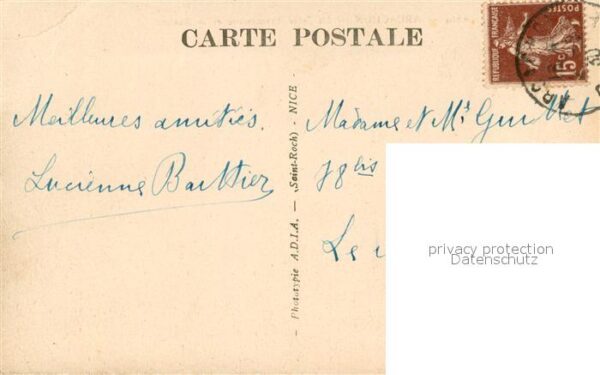 CARTE POSTALE
RÉPUBLIQUE FRANÇAISE
POSTES
15c
Meilleures amitiés.
Lucienne Barthier
Phototypie A.D.I.A. — (Saint-Roch) - NICE -
Madame et Mr Guillet
78 bis
Le
privacy protection
Datenschutz